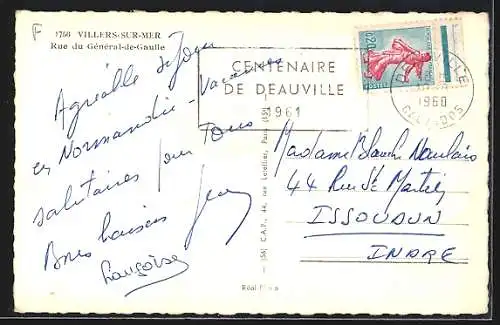 F
1766 VILLERS-SUR-MER
Rue du Général-de-Gaulle
Agréable séjour
en Normandie - Vacances
salutaires pour Tous
Bons baisers Jean
Françoise
CENTENAIRE
DE DEAUVILLE
1961
0,20
POSTES
DEAUVILLE
1960
CALVADOS
Madame Blanche
44 Rue St Martin
ISSOUDUN
INDRE
(58) C.A.P., 44, rue Paris (15e)
Réal